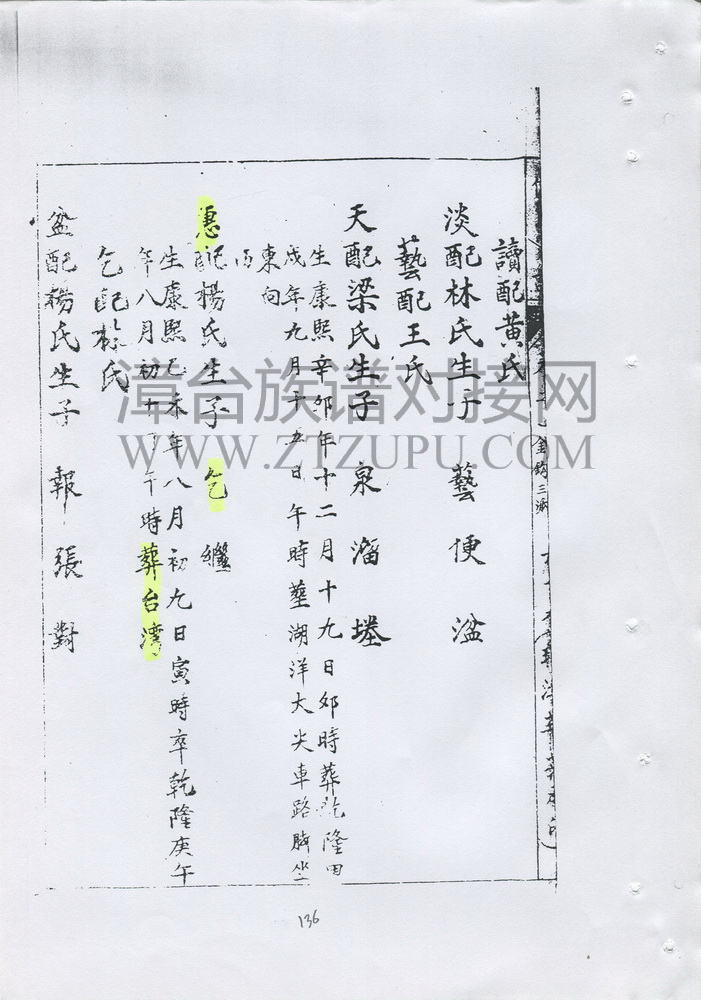 讀配黄氏
淡配林氏生子 藝 便 溢
藝配王氏
天配梁氏生子 泉 溜
生康熙辛卯年十二月十九日卯時葬乾隆
戌年九月十五日午時塟湖洋大尖車路 坐
東向
惠配楊氏生子 乞 繼
生康熙己未年八月初九日寅時卒乾隆庚午
年八月初九 午時葬台湾
乞配林氏
盆配楊氏生子 報 張 對
金鈎三派
漳台族谱对接网
WWW.ZTZUPU.COM
136